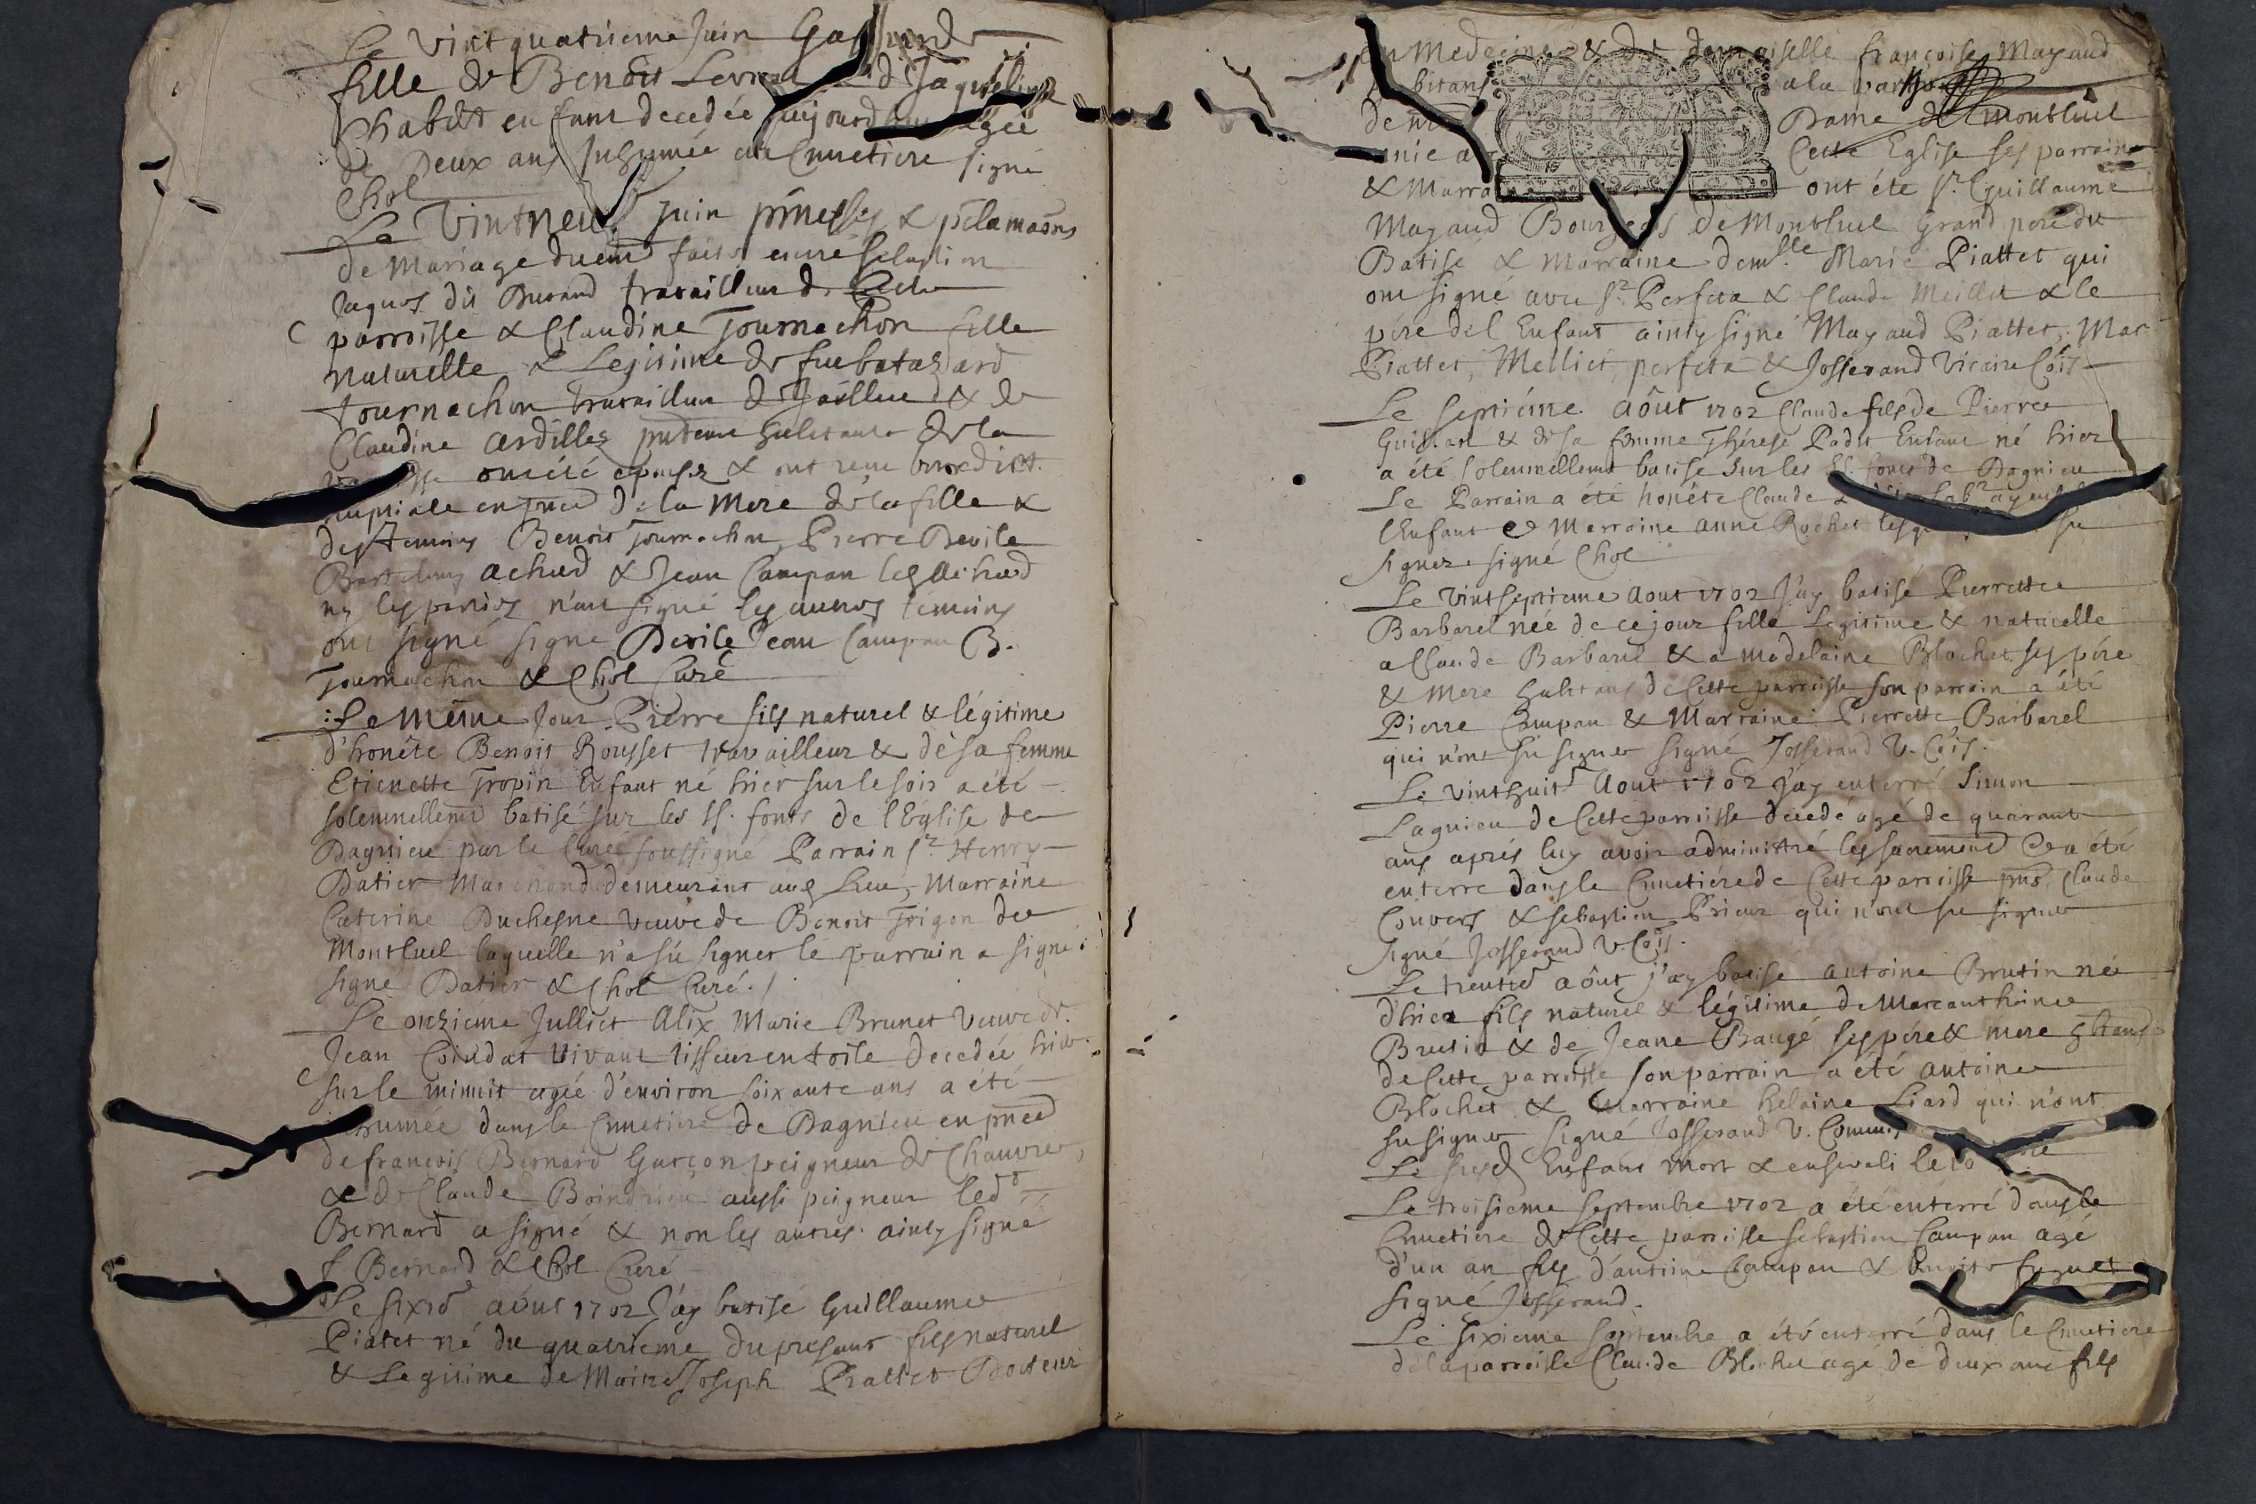 Le vintquatrieme Juin
fille de Benoit
Chabot enfant decedée aujourd agée
de Deux ans Inhumée au Cimetiere signé
Chol
Le Vintneuf Juin &
de Mariage faits
Jaques dit Durand travailleur de Cette
parroisse & Claudine Tournachon fille
naturelle & Legitime de feu
Tournachon travailleur & de
Claudine Ardilles habitante de la
ont été epousez & ont receu benedict.
nuptiale en pnce de la Mere de la fille &
des temoins Benoit Tournachon, Pierre Devile
Achard & Jean Campan les Achard
ny les parties n'ont signé les autres témoins
ont signé signé Devile Jean Campan B.
Tournachon & Chol Curé
Le même Jour Pierre fils naturel & légitime
d'honête Benoit Rousset travailleur & de sa femme
Etienette Tropin Enfant né hier sur le soir a été
solemnellemt batisé sur les SS. fonts de l'Eglise de
Dagnieu par le Curé soussigné Parrain sr. Henry
Datier Marchand demeurant aud Lieu, Marraine
Caterine Duchesne veuve de Benoit Trigon de
Montluel laquelle n'a sû signer le parrain a signé.
signé Datier & Chol Curé./
Le onzieme Julliet Alix Marie Brunet veuve de
Jean Coindat vivant tisseur en toile decedée hier
sur le minuit agée d'environ soixante ans a été
inhumée dans le Cimetiere de Dagnieu en pnce
de françois Bernard Garçon peigneur de Chanvre,
& de Claude aussi peigneur led
Bernard a signé & non les autres. ainsy signé
f Bernard & Chol Curé
Le sixie aout 1702 J'ay batisé Guillaume
Piatet né du quatrieme du presant fils naturel
& Legitime de Maitre Joseph Piattet Docteur
en Medecine & de demoiselle françoise Mayaud
habitans a la
de Dame de Montluel
Cette Eglise ses parrain
& Marra ont éte sr. Guillaume
Mayaud Bourgeois de Montluel Grand pere du
Batisé & Marraine demlle Marie Piattet qui
ont signé avec sr. Perfeta & Claude Meillet & le
pére de l'Enfant ainsy signé Mayaud Piattet, Mar
Piattet, Melliet, perfeta & Josserand Vicaire Cois
Le septiéme aôut 1702 Claude fils de Pierre
& de sa femme Thérese Enfant né hier
a été solemnellemt batisé sur les SS. fonts de Dagnieu
Le Parrain a été honête Claude
l'Enfant & Marraine Anne Rochet
signer signé Chol
Le vintseptieme Aout 1702 J'ay batisé Pierrette
Barbarel née de ce jour fille Legitime & naturelle
a Claude Barbarel & a Madelaine Blochet ses pére
& Mere habitans de Cette parroisse son parrain a été
Pierre Campan & Marraine Pierrette Barbarel
qui n'ont sû signer signé Josserand V. Cois.
Le vinthuit Aout 1702 J'ay enterré Simon
Lagnieu de Cette parroisse decedé agé de quarante
ans aprés luy avoir administré les sacrements & a été
enterré dans le Cimetiére de Cette parroisse pns. Claude
Convers & Sebastien Prieur qui n'ont su signer
signé Josserand V Cois.
Le trente aôut j'ay batisé Antoine Brutin né
d'hier fils naturel & légitime de Marcanthoine
Brutin & de Jeane Baugé ses pére & mere
de Cette parroisse son parrain a été Antoine
Blochet & Marraine Helaine Liard qui n'ont
su signer signé Josserand V. Commis
Le susd Enfant mort & enseveli le
Le troisieme septembre 1702 a été enterré dans le
Cimetiere de Cette parroisse Sebastien Campan agé
d'un an fils d'Antoine Campan &
signé Josserand.
Le sixieme septembre a été enterré dans le Cimetiere
de la parroisse Claude Blochet agé de deux ans fils